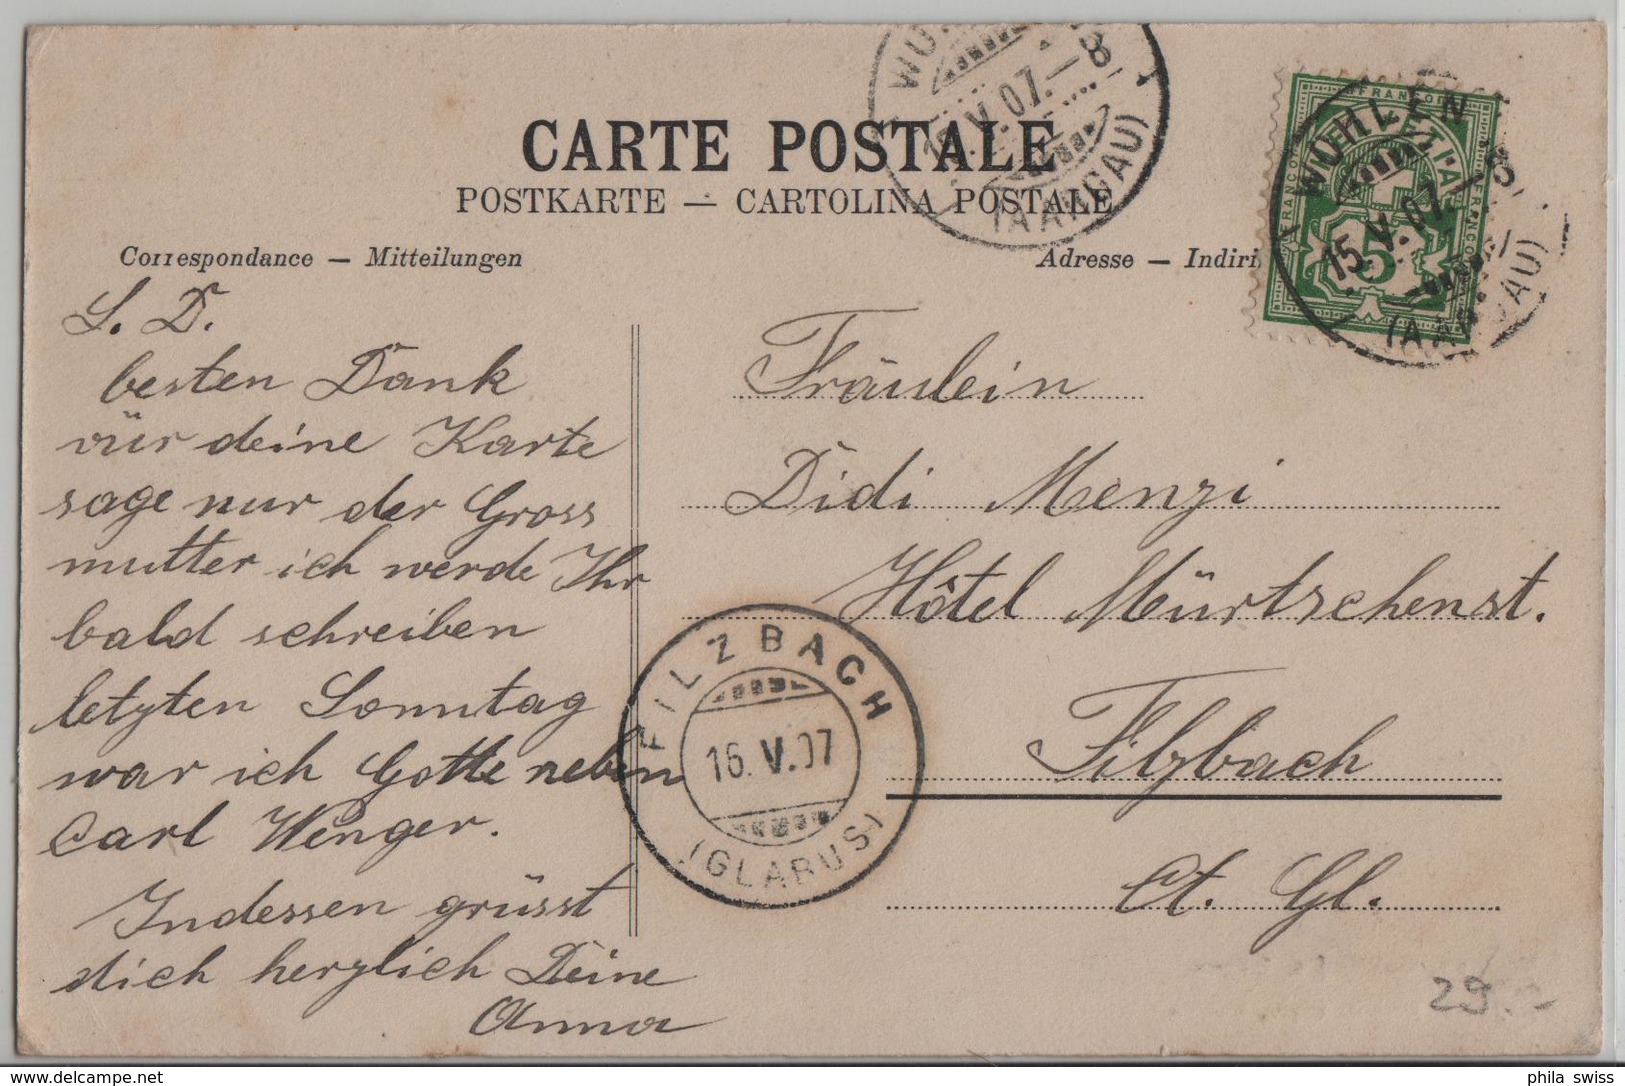 CARTE POSTALE
POSTKARTE — CARTOLINA POSTALE
Correspondance — Mitteilungen
Adresse — Indiri
WOHLEN
15.V.07.–8
(AARGAU)
FRANCO
HELVETIA
5
WOHLEN
15.V.07.–8
(AARGAU)
L. D.
besten Dank
vür deine Karte
sage nur der Gross
mutter ich werde Ihr
bald schreiben
letzten Sonntag
war ich Gotte neben
Carl Wenger.
Indessen grüsst
dich herzlich Deine
Anna
Fräulein
Didi Menzi
Hôtel Mürtschenst.
Filzbach
Ct. Gl.
FILZBACH
16.V.07
(GLARUS)
29.-
phila swiss